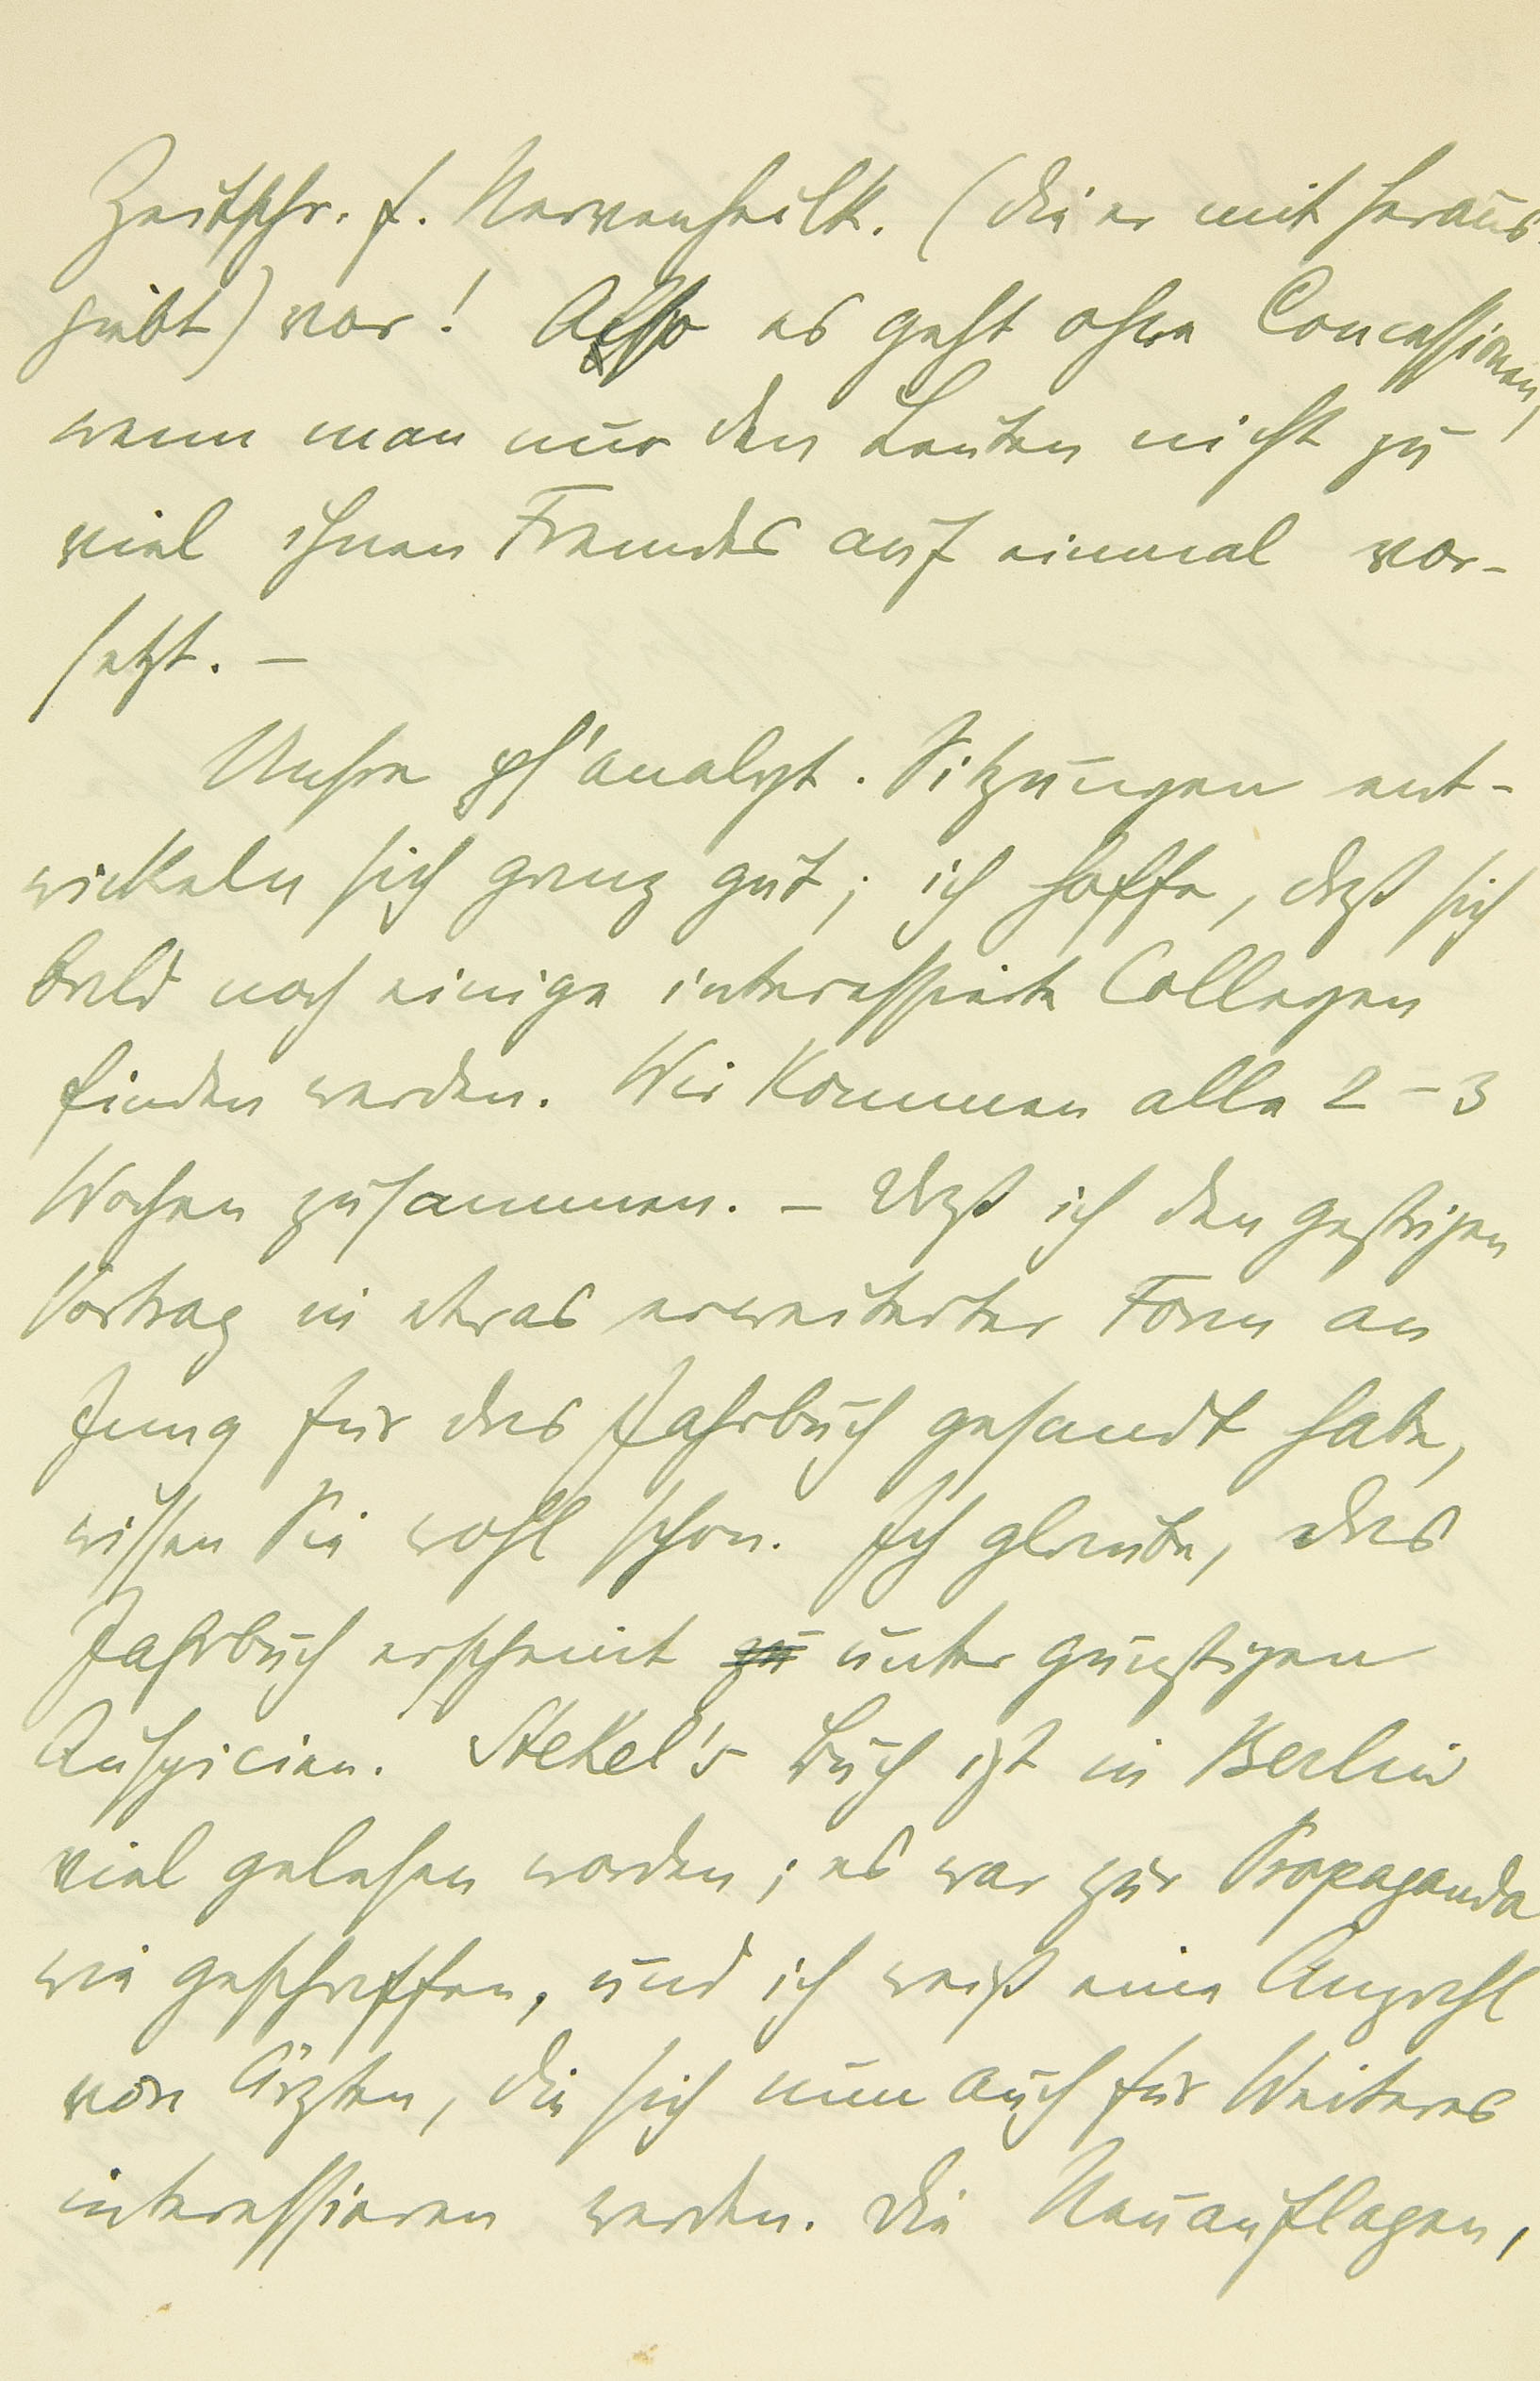 Zeitschr. f. Nervenheilk. (die er mit heraus-
giebt) vor! Also es geht ohne Concessionen,
wenn man nur den Leuten nicht zu
viel ihnen Fremdes auf einmal vor-
setzt. –
Unsre ps'analyt. Sitzungen ent-
wickeln sich ganz gut; ich hoffe, daß sich
bald noch einige interessierte Collegen
finden werden. Wir kommen alle 2–3
Wochen zusammen. – Daß ich den gestrigen
Vortrag in etwas erweiterter Form an
Jung für das Jahrbuch gesandt habe,
wissen Sie wohl schon. Ich glaube, das
Jahrbuch erscheint zu unter günstigen
Auspicien. Stekel's Buch ist in Berlin
viel gelesen worden; es war zur Propaganda
wie geschaffen, und ich weiß eine Anzahl
von Ärzten, die sich nun auch für Weiteres
interessieren werden. Die Neuauflagen,